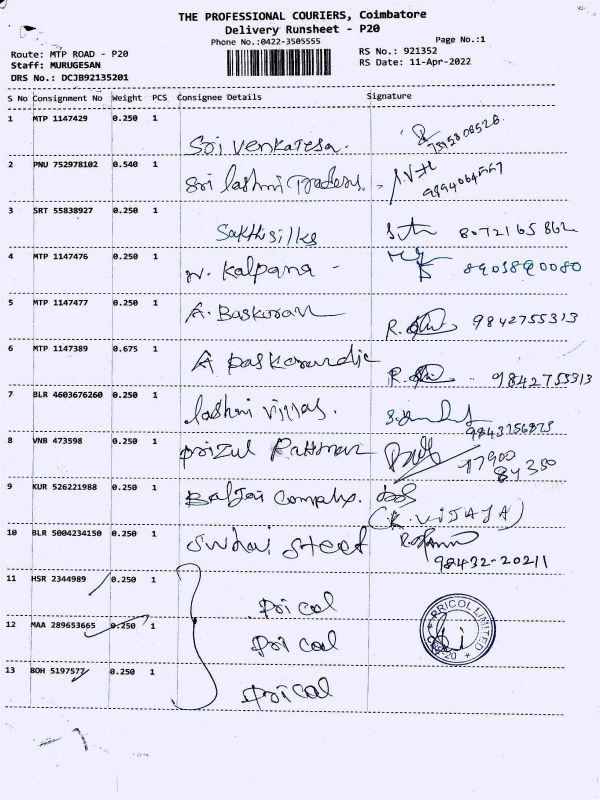 THE PROFESSIONAL COURIERS, Coimbatore
Delivery Runsheet - P20
Phone No.:0422-3505555
Page No.:1
Route: MTP ROAD - P20
RS No.: 921352
Staff: MURUGESAN
RS Date: 11-Apr-2022
DRS No.: DCJB92135201
S No Consignment No Weight PCS Consignee Details Signature
1 MTP 1147429 0.250 1
Sri Venkatesa.
2 PNU 752978102 0.540 1
Sri lashmi Traders.
3 SRT 55838927 0.250 1
Sakthi silks 8072165862
4 MTP 1147476 0.250 1
N. Kalpana - 8903890080
5 MTP 1147477 0.250 1
A. Baskaran
9842755313
6 MTP 1147389 0.675 1
A
9842755313
7 BLR 4603676260 0.250 1
lashmi villas.
8 VNB 473598 0.250 1
9 KUR 526221988 0.250 1
(R. VIJAYA)
10 BLR 5004234150 0.250 1
steel
98432-20211
11 HSR 2344989 0.250 1
pricol
12 MAA 289653665 0.250 1
pricol
PRICOL LIMITED
13 BOH 5197577 0.250 1
pricol